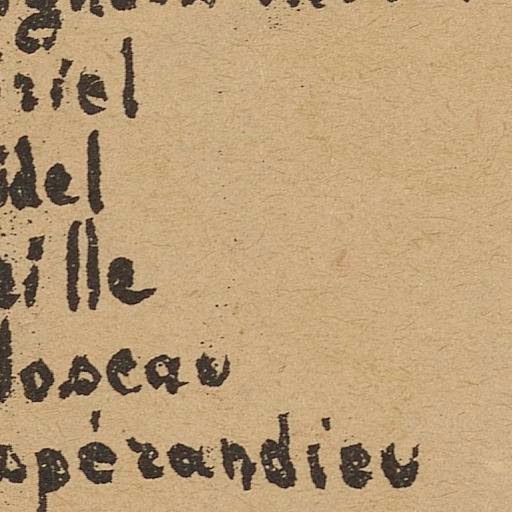 riel
idel
eille
loscau
spérandieu